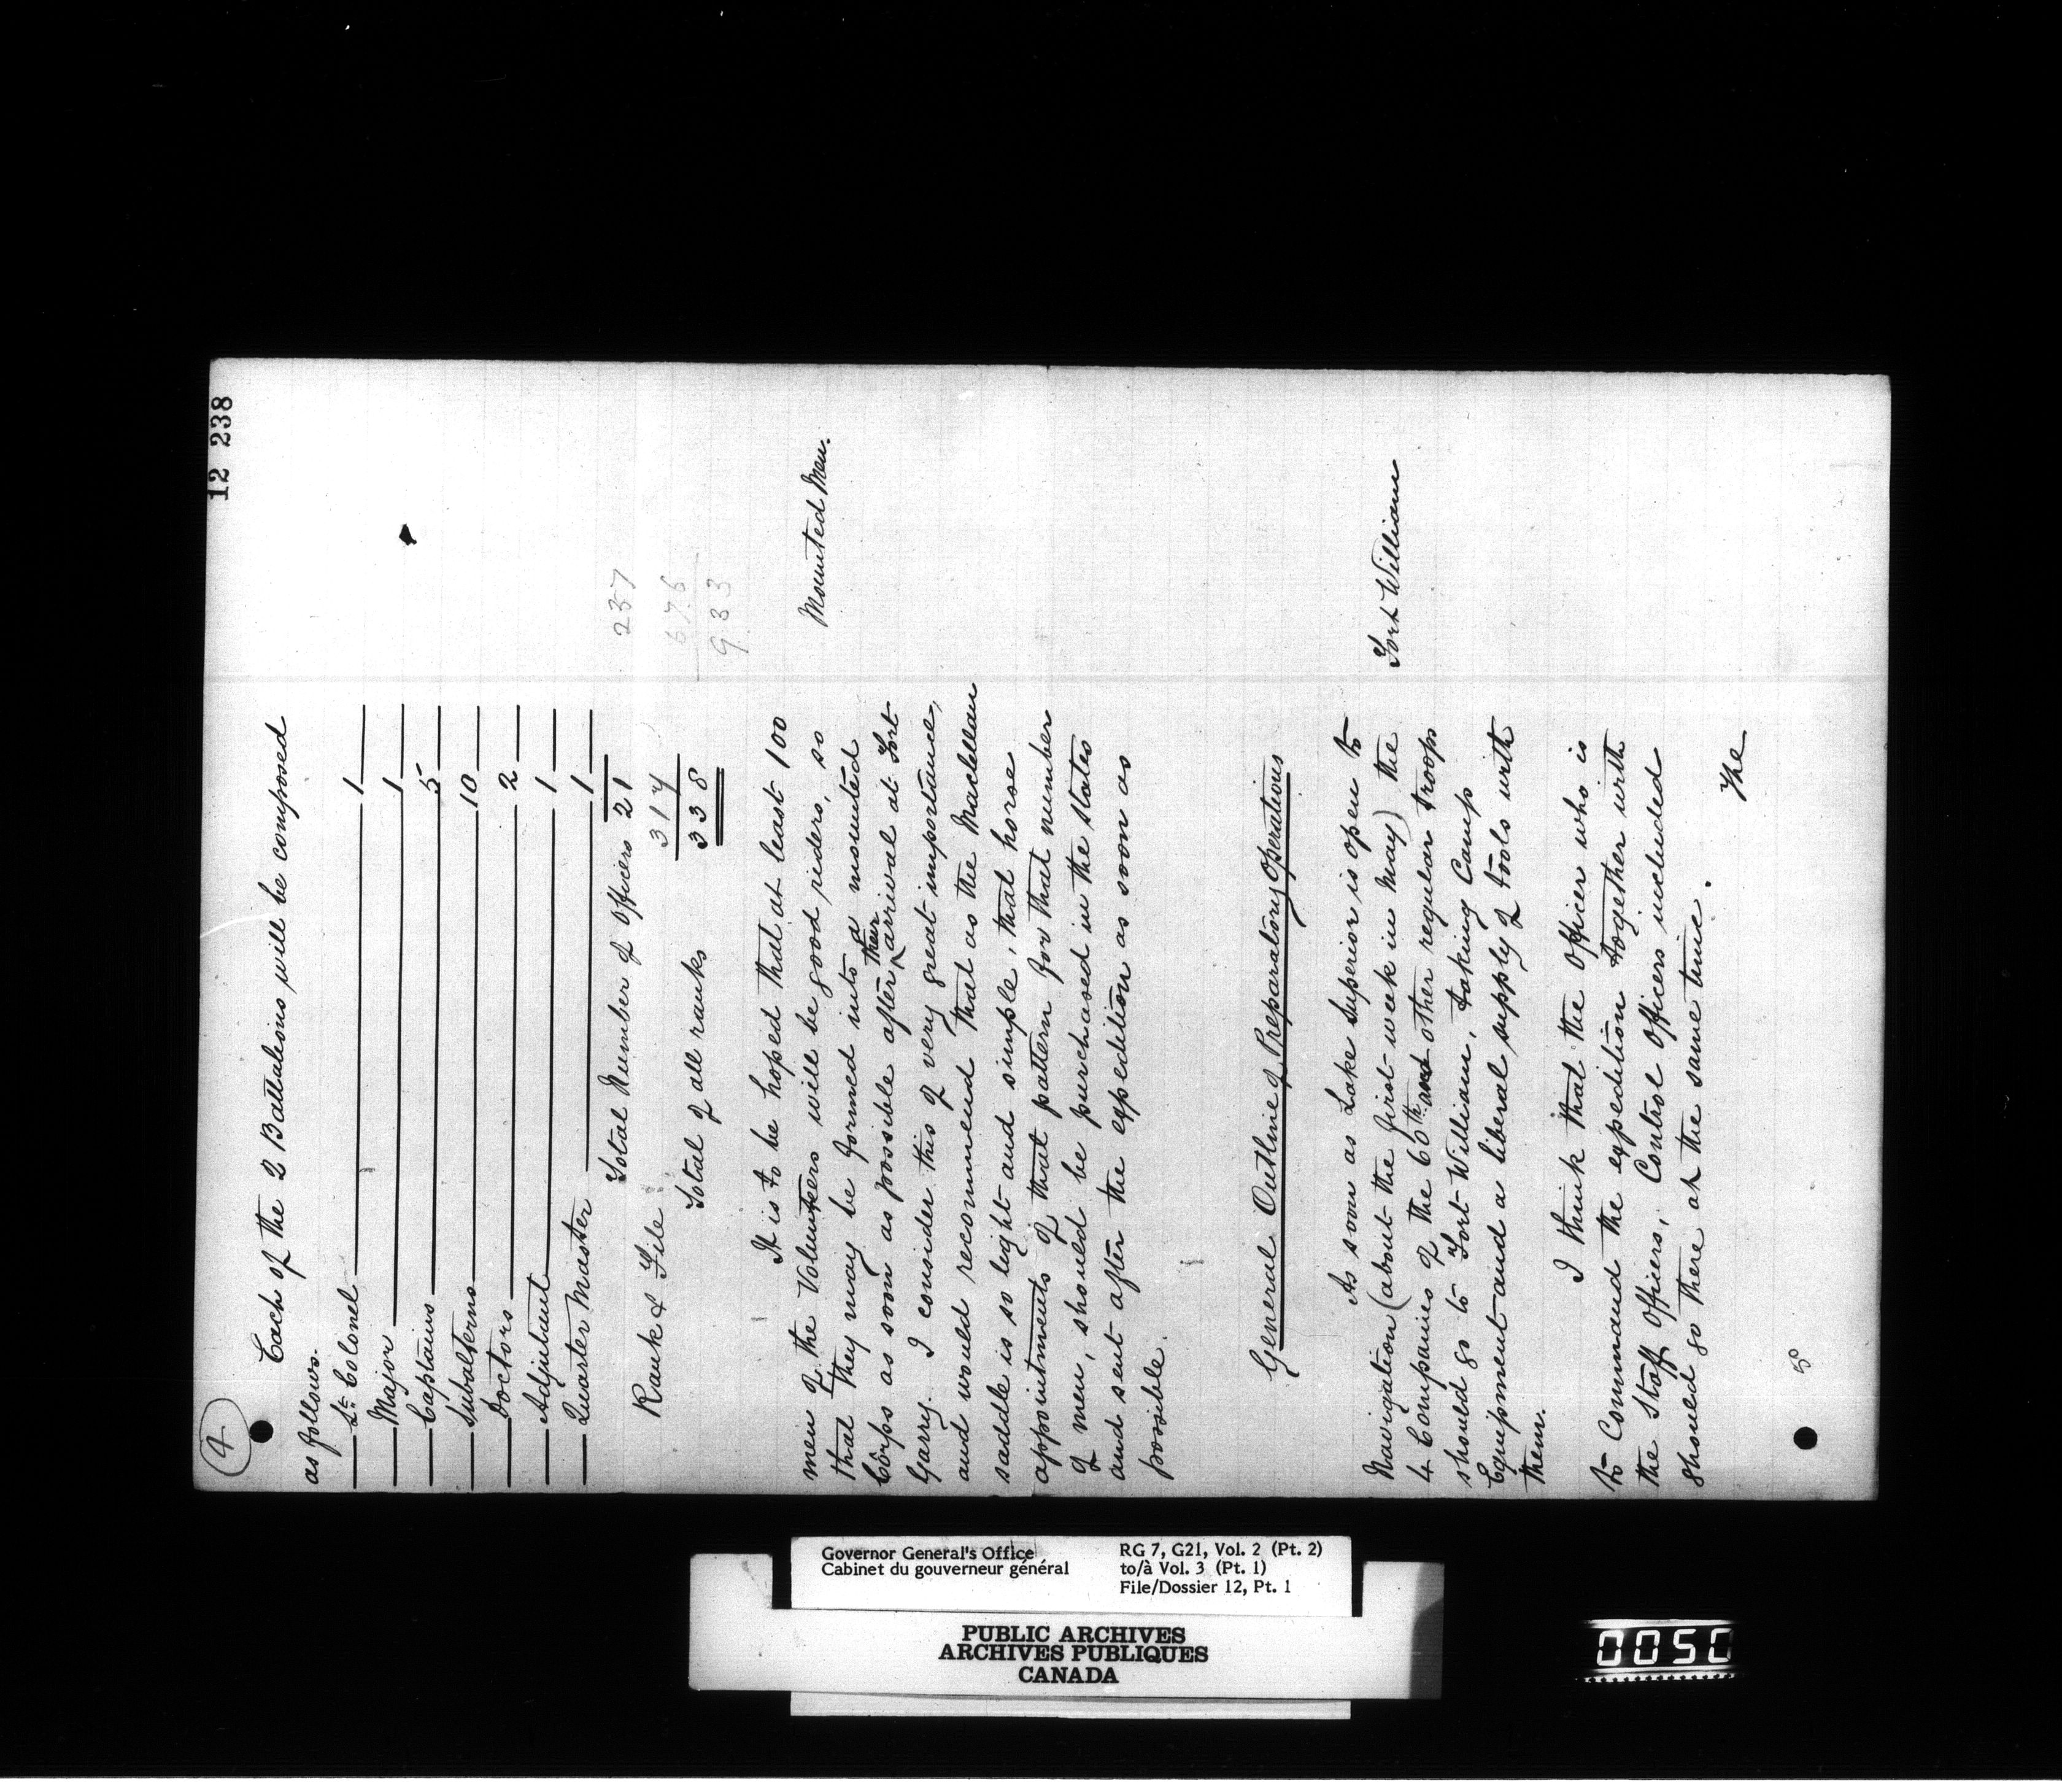 12 238
4
Each of the 2 Battalions will be composed
as follows.
Lt. Colonel 1
Major 1
Captains 5
Subalterns 10
Doctors 2
Adjutant 1
Quarter Master 1
Total Number of Officers 21
Rank & File 317
Total of all ranks 338
933
It is to be hoped that at least 100
men of the Volunteers will be good riders, so
that they may be formed into a mounted
Corps as soon as possible after their arrival at Fort
Garry. I consider this of very great importance,
and would recommend that as the Maclellan
saddle is so light and simple, that horse
appointments of that pattern for that number
of men, should be purchased in the States
and sent after the expedition as soon as
possible.
Mounted Men.
General Outline of Preparatory Operations
As soon as Lake Superior is open to
Navigation (about the first week in May) the
4 Companies of the 60th and other regular troops
should go to Fort William, taking Camp
Equipment and a liberal supply of tools with
them.
Fort William
I think that the Officer who is
to Command the expedition together with
the Staff Officers, Control Officers included
should go there at the same time.
The
50
Governor General's Office
Cabinet du gouverneur général
RG 7, G21, Vol. 2 (Pt. 2)
to/à Vol. 3 (Pt. 1)
File/Dossier 12, Pt. 1
PUBLIC ARCHIVES
ARCHIVES PUBLIQUES
CANADA
0050